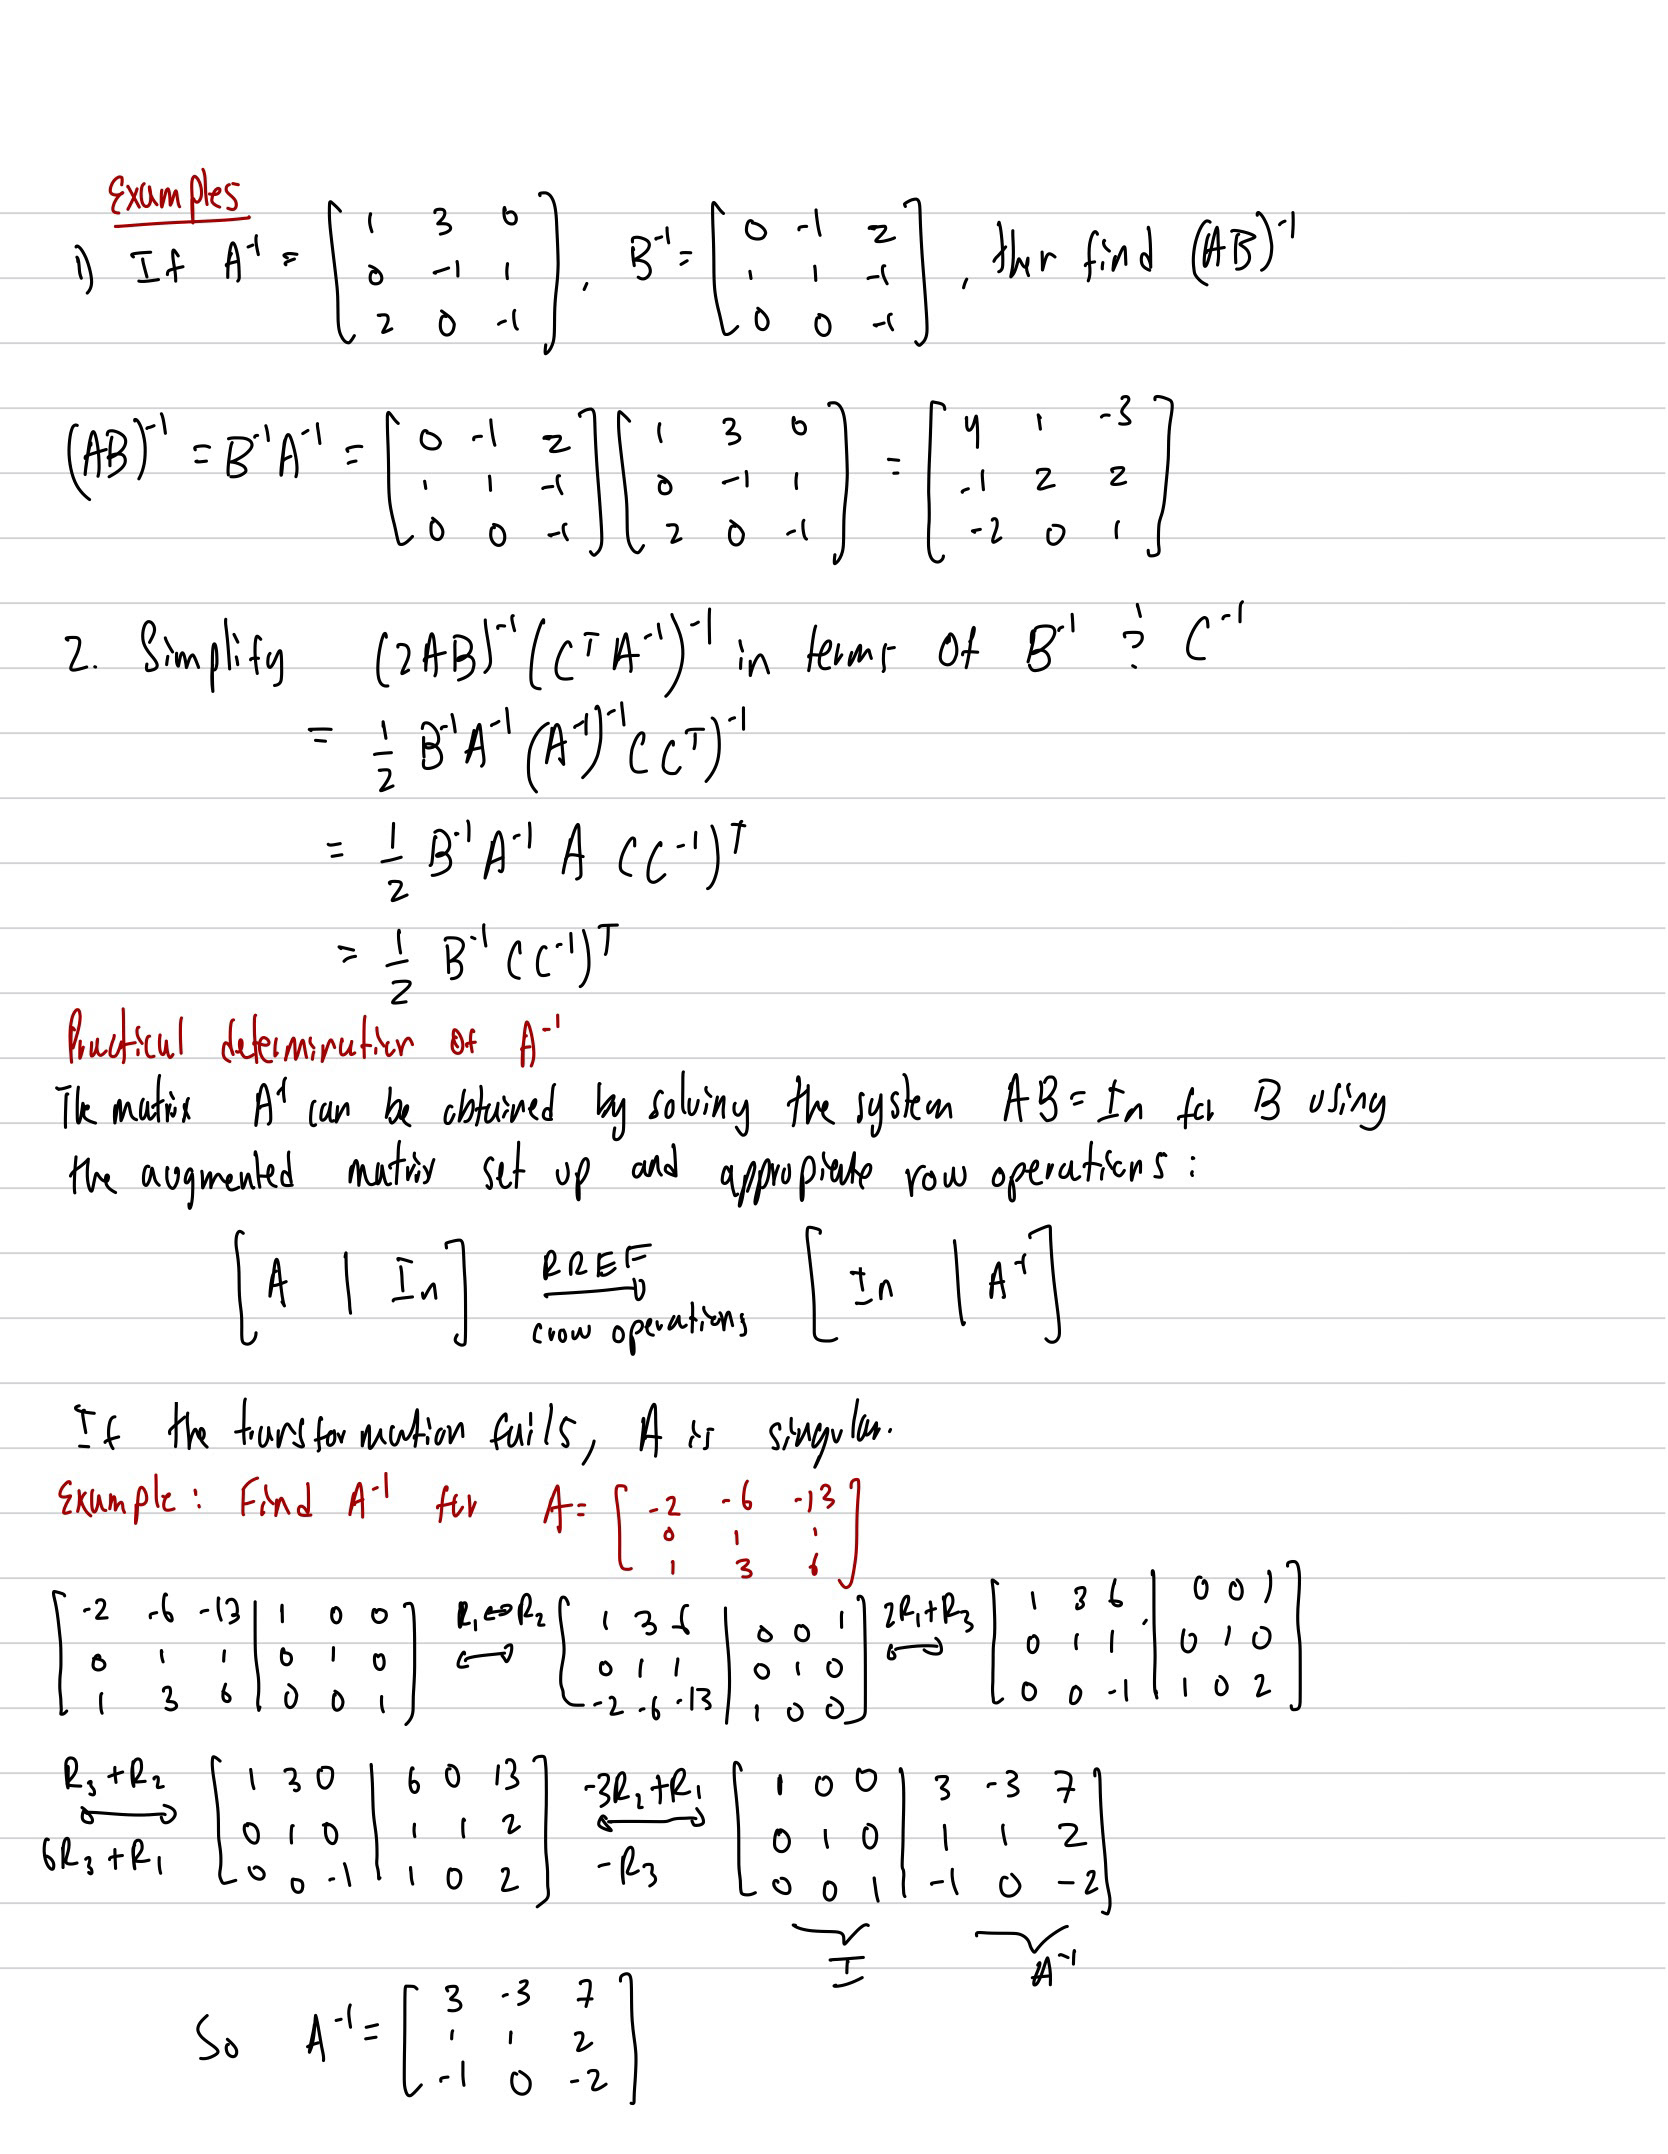 Examples
1) If A⁻¹ = [1 3 0; 0 -1 1; 2 0 -1], B⁻¹ = [0 -1 2; 1 1 -1; 0 0 -1], then find (AB)⁻¹
(AB)⁻¹ = B⁻¹A⁻¹ = [0 -1 2; 1 1 -1; 0 0 -1] [1 3 0; 0 -1 1; 2 0 -1] = [4 1 -3; -1 2 2; -2 0 1]
2. Simplify (2AB)⁻¹(CᵀA⁻¹)⁻¹ in terms of B⁻¹ ? C⁻¹
= 1/2 B⁻¹A⁻¹(A⁻¹)⁻¹(Cᵀ)⁻¹
= 1/2 B⁻¹A⁻¹ A (C⁻¹)ᵀ
= 1/2 B⁻¹(C⁻¹)ᵀ
Practical determination of A⁻¹
The matrix A⁻¹ can be obtained by solving the system AB = In for B using
the augmented matrix set up and appropiate row operations:
[A | In] RREF → [In | A⁻¹]
row operations
If the transformation fails, A is singular.
Example: Find A⁻¹ for A = [-2 -6 -13; 0 1 1; 1 3 6]
[-2 -6 -13 | 1 0 0; 0 1 1 | 0 1 0; 1 3 6 | 0 0 1] R₁↔R₂ ↔ [1 3 6 | 0 0 1; 0 1 1 | 0 1 0; -2 -6 -13 | 1 0 0] 2R₁+R₃ ↔ [1 3 6 | 0 0 1; 0 1 1 | 0 1 0; 0 0 -1 | 1 0 2]
R₃+R₂ ↔ 6R₃+R₁ [1 3 0 | 6 0 13; 0 1 0 | 1 1 2; 0 0 -1 | 1 0 2] -3R₂+R₁ ↔ -R₃ [1 0 0 | 3 -3 7; 0 1 0 | 1 1 2; 0 0 1 | -1 0 -2]
I A⁻¹
So A⁻¹ = [3 -3 7; 1 1 2; -1 0 -2]